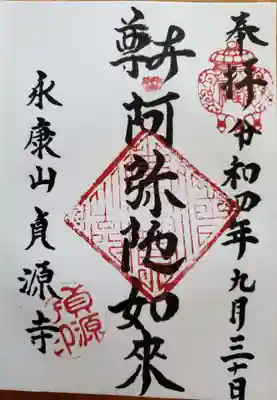 奉拝 令和四年九月三十日
本尊
阿弥陀如来
永康山 貞源寺